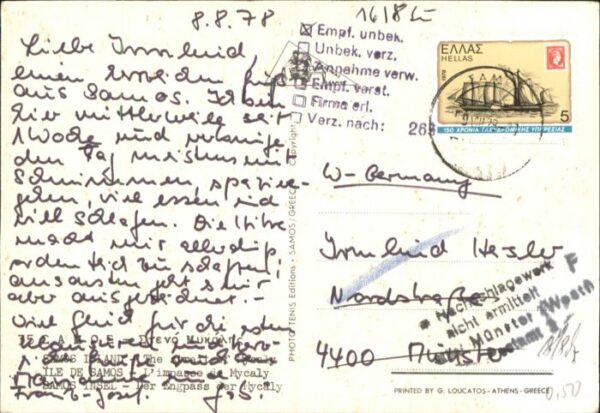 8.8.78
16/8
Liebe Irmelind
einen
aus Samos. Ich bin
hier mittlerweile seit
1 Woche und verbringe
den Tag meistens mit
Schwimmen, spazie-
gehen, viel essen und
viel schlafen. Die Hitze
macht mir allerdings
zu schaffen,
ansonsten geht's mir
aber ausgezeichnet.-
Viel Glück für die
ΣΑΜΟΣ - Στενό Μυκάλης
SAMOS ISLAND - The Mycaly
ILE DE SAMOS - L'impasse de Mycaly
SAMOS INSEL - Der Engpass der Mycaly
Franz-Josef.
PHOTO TENIS Editions - SAMOS/GREECE Copyright
Empf. unbek.
Unbek. verz.
Annahme verw.
Empf. verst.
Firma erl.
Verz. nach:
263
ΕΛΛΑΣ
HELLAS
1978
5
150 ΧΡΟΝΙΑ ΤΑΧΥΔΡΟΜΙΚΗΣ ΥΠΗΡΕΣΙΑΣ
W-Germany
Irmelind Hesler
Nordstraße
4400 Münster
F
Nachschlagewerk
nicht ermittelt
Münster (Westf)
Postamt 2
PRINTED BY G. LOUCATOS - ATHENS - GREECE